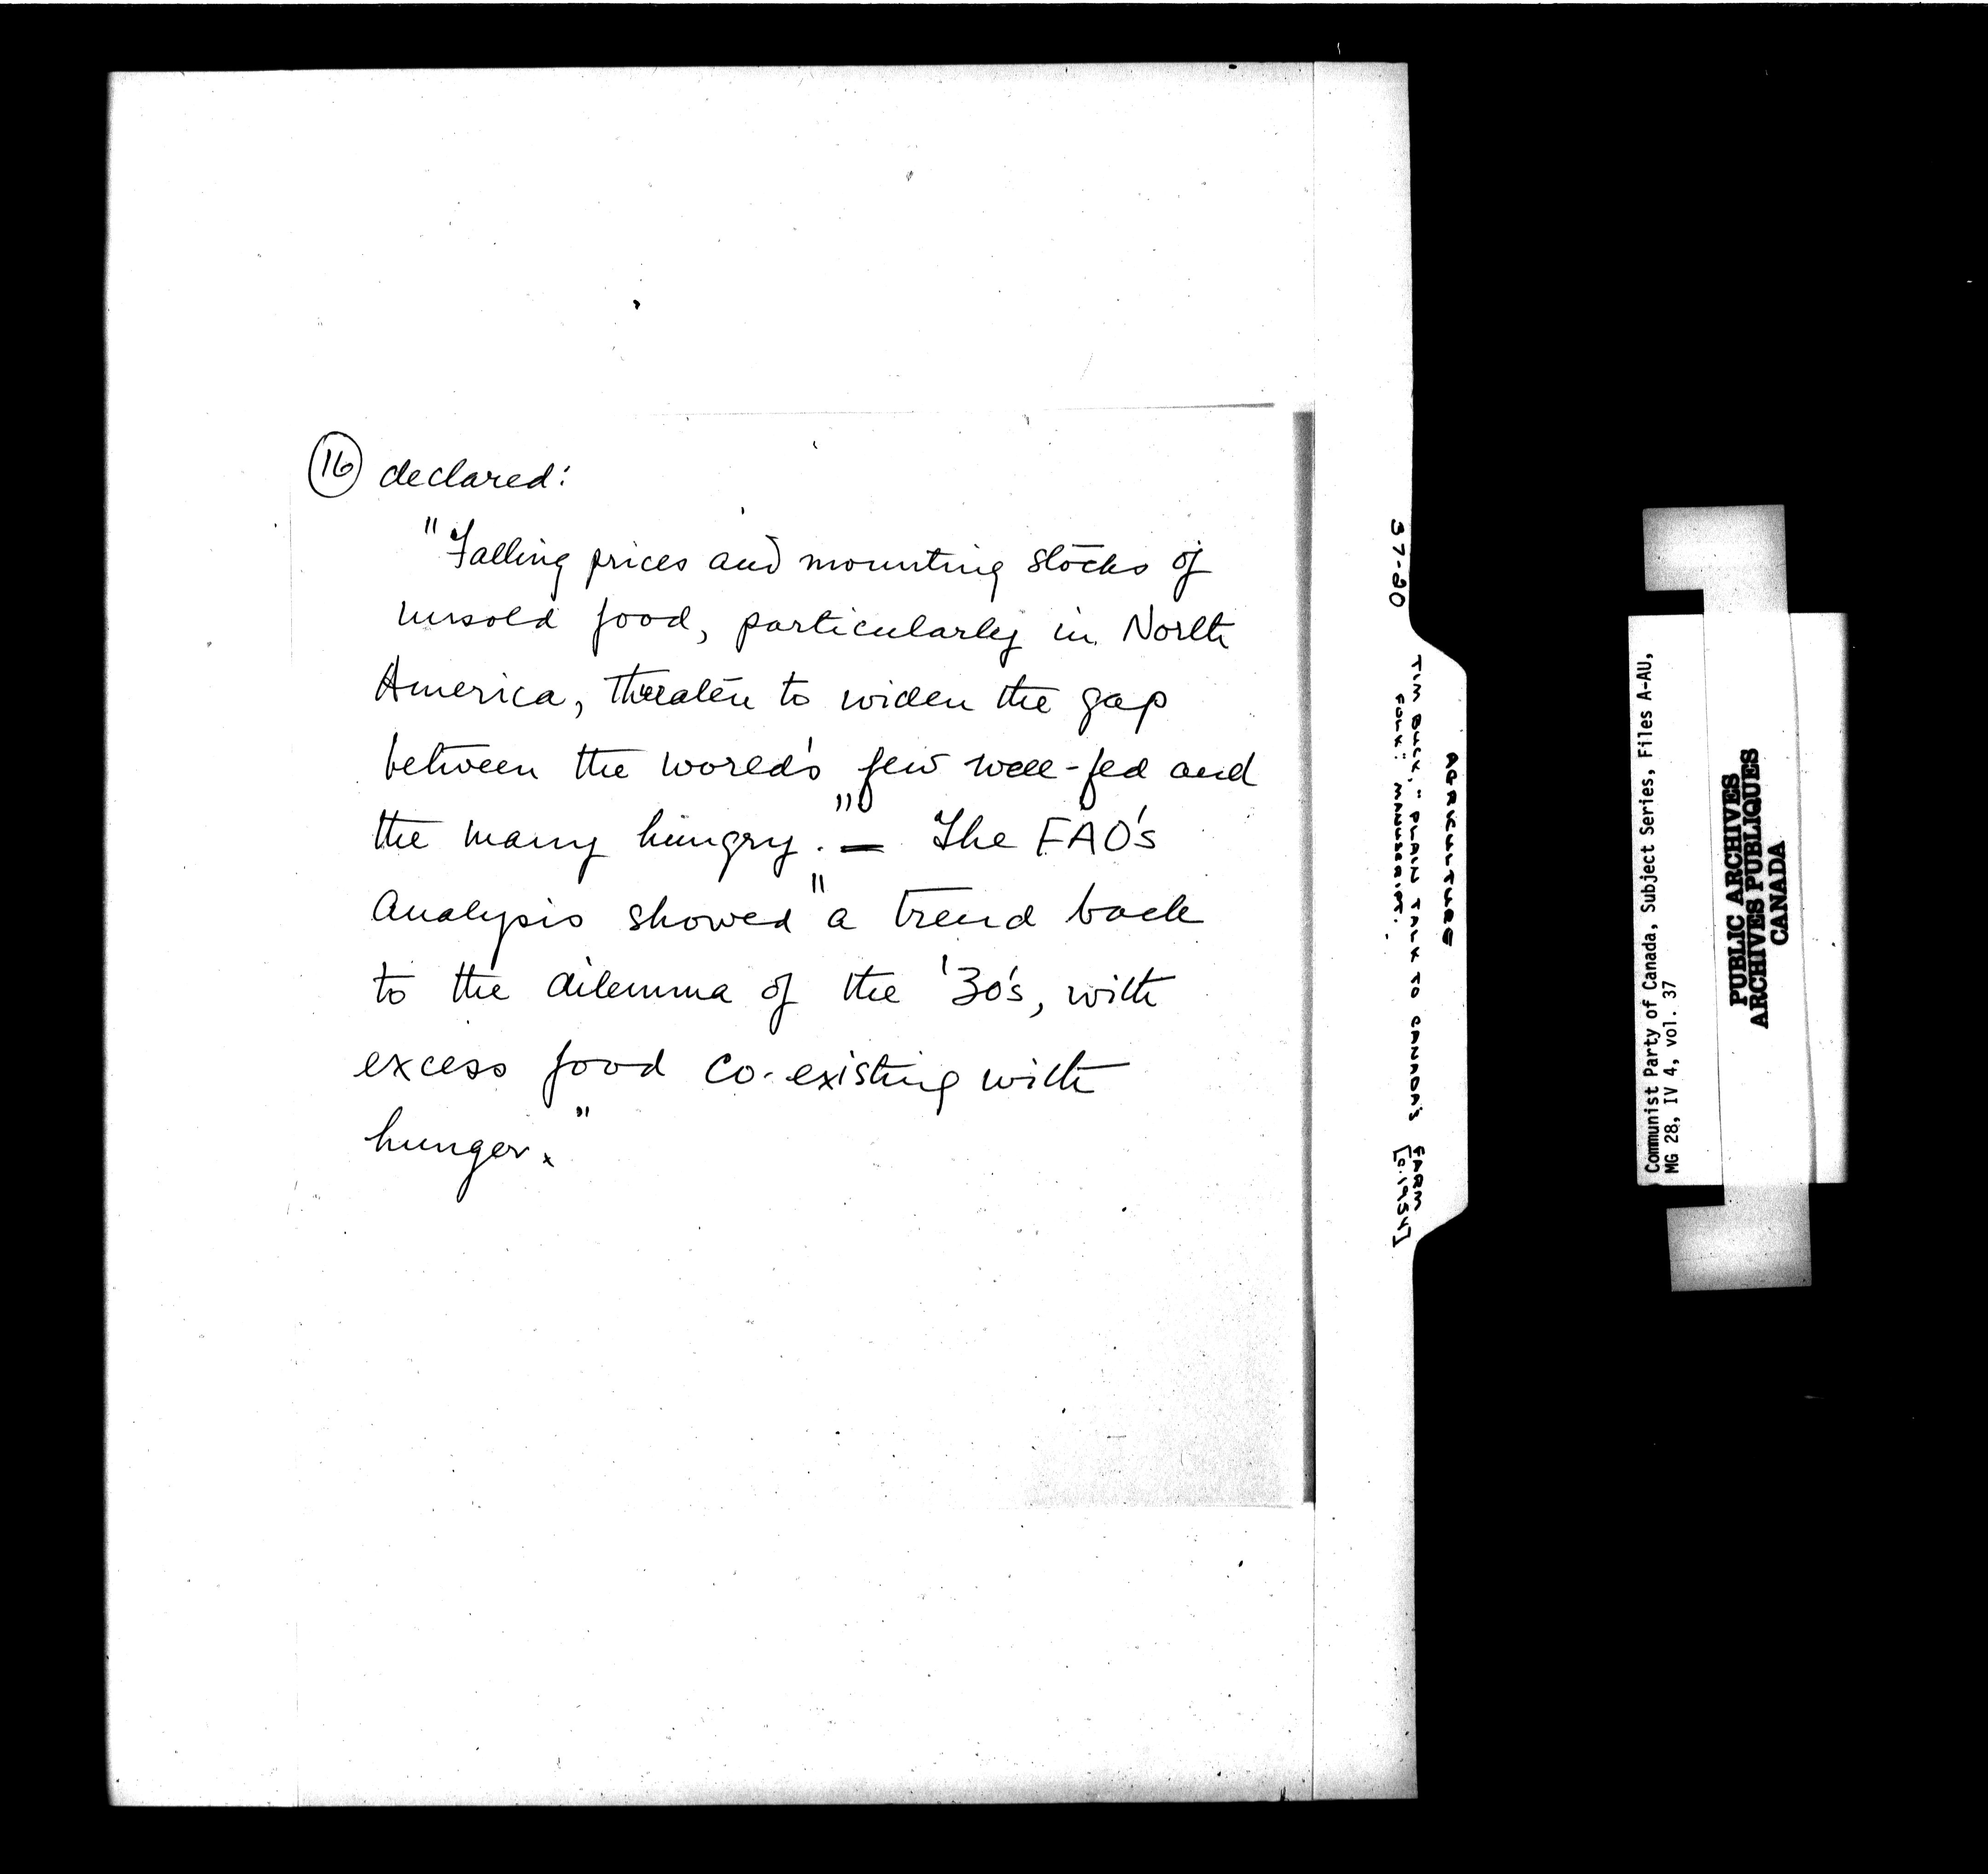 (16) declared:
"Falling prices and mounting stocks of
unsold food, particularly in North
America, threaten to widen the gap
between the world's few well-fed and
the many hungry." — The FAO's
analysis showed "a trend back
to the dilemma of the '30's, with
excess food co-existing with
hunger."
37-20
AGRICULTURE
TIM BUCK, "PLAIN TALK TO CANADA'S FARM
FOLK: MANUSCRIPT. [c.1954]
Communist Party of Canada, Subject Series, Files A-AU,
MG 28, IV 4, vol. 37
PUBLIC ARCHIVES
ARCHIVES PUBLIQUES
CANADA